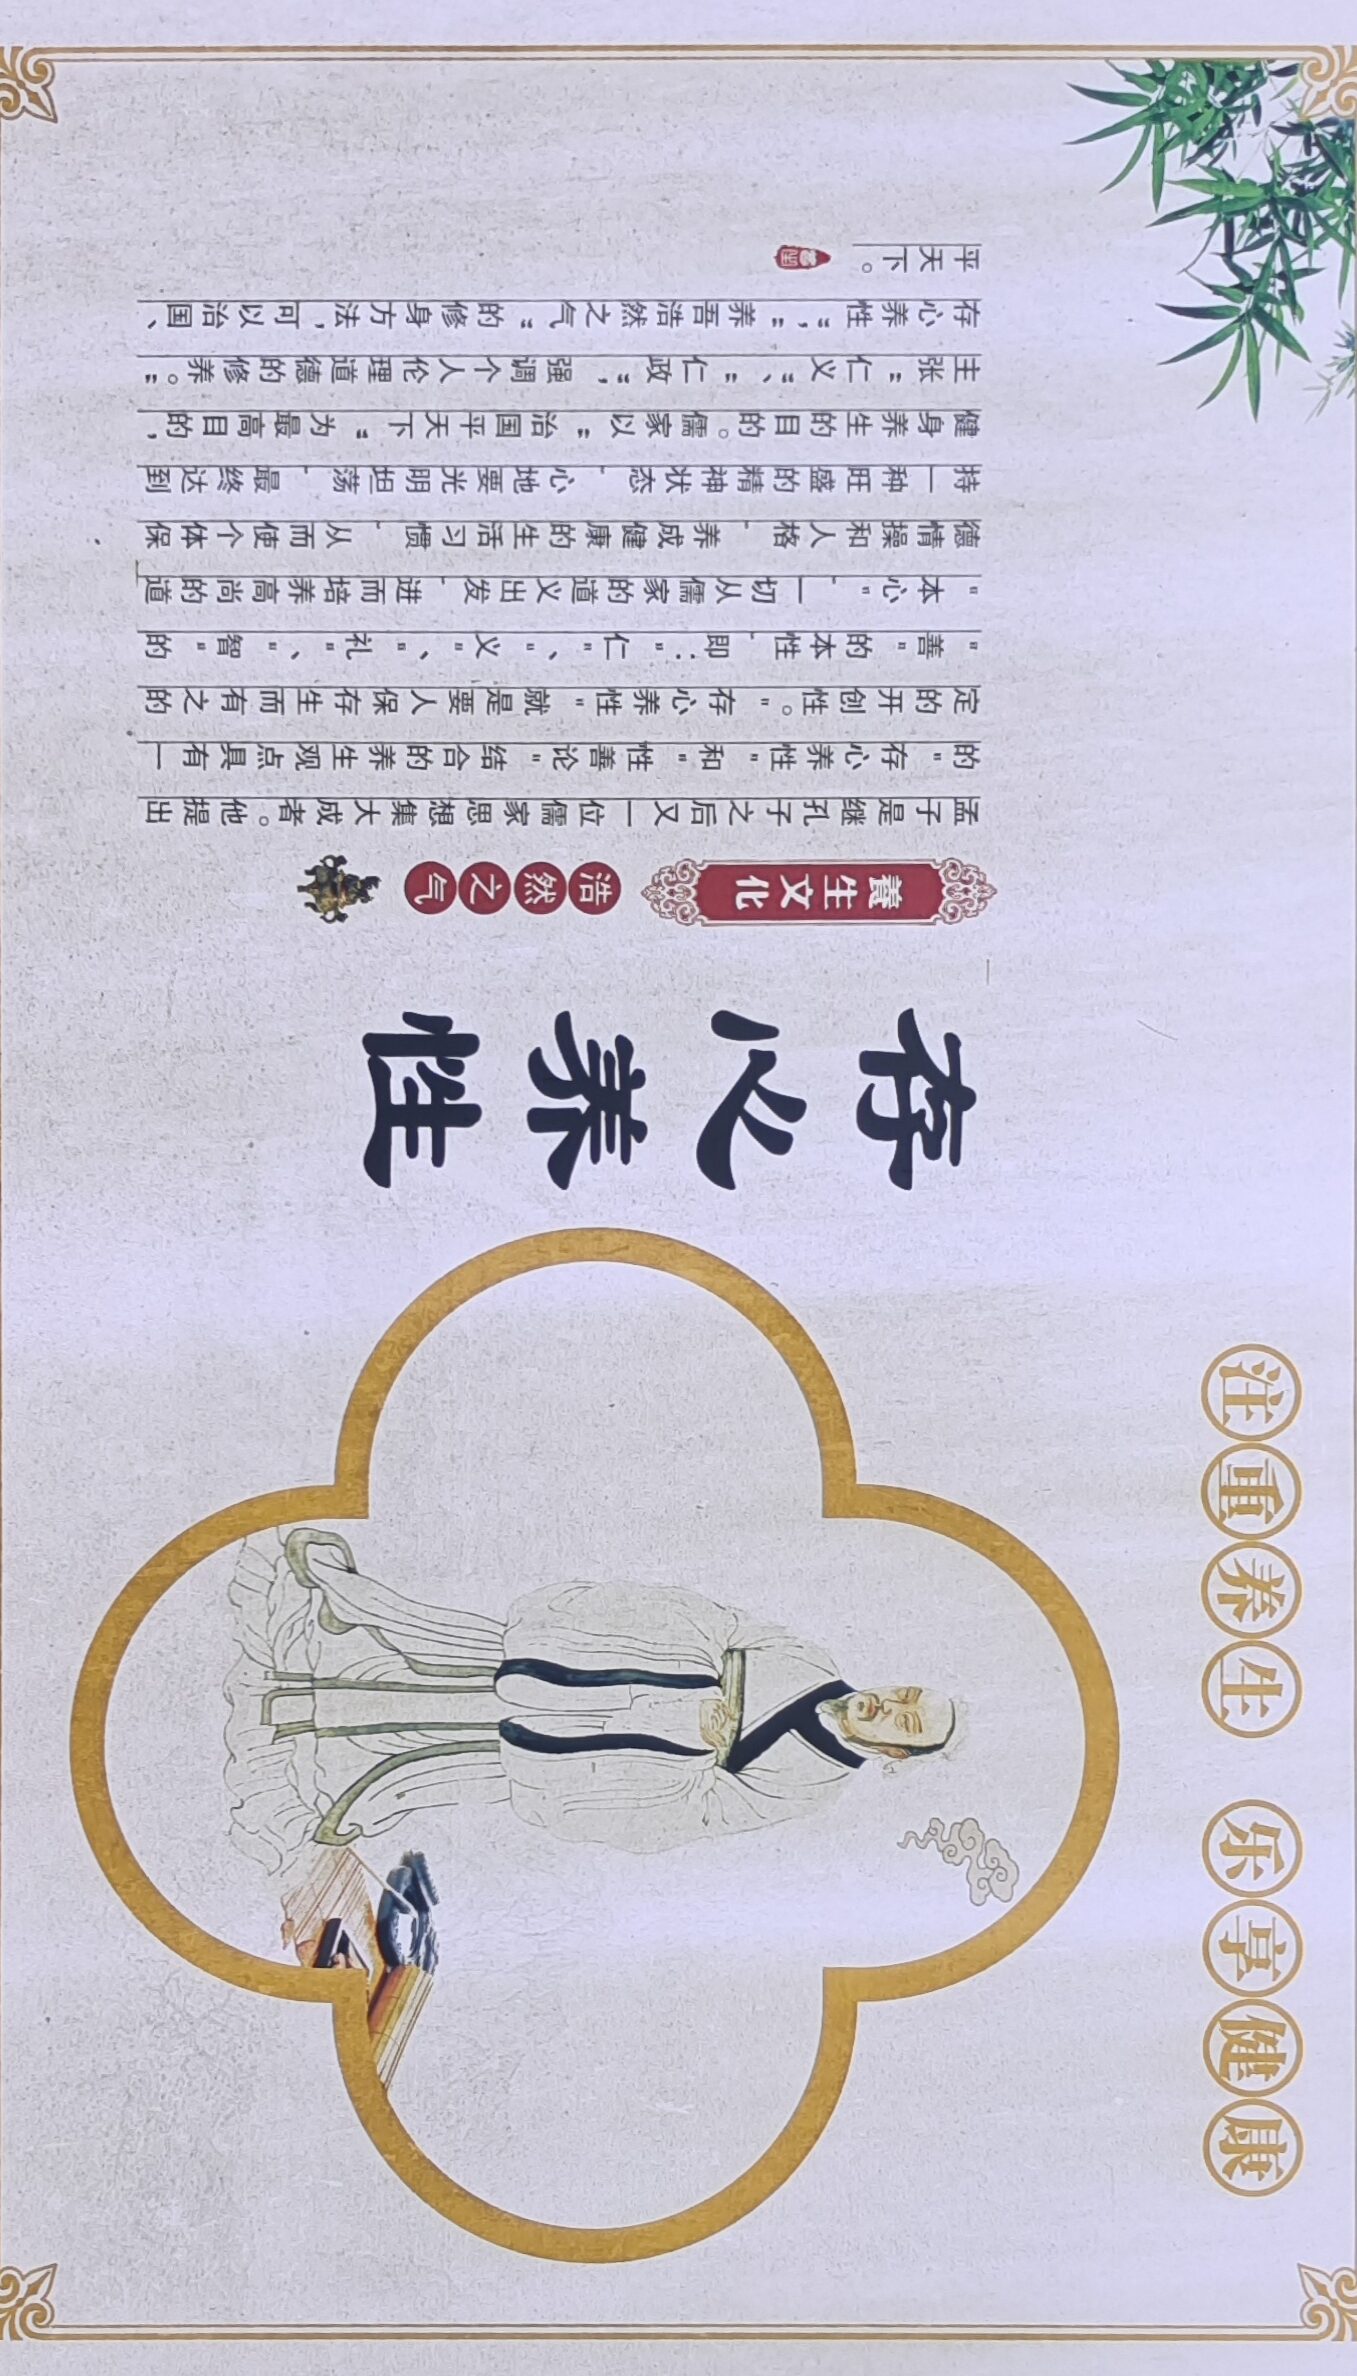 注重养生 乐享健康
存心养性
養生文化
浩然之气
孟子是继孔子之后又一位儒家思想集大成者。他提出
的"存心养性"和"性善论"结合的养生观点具有一
定的开创性。"存心养性"就是要人保存生而有之的
"善"的本性，即："仁"、"义"、"礼"、"智"的
"本心"，一切从儒家的道义出发，进而培养高尚的道
德情操和人格，养成健康的生活习惯，从而使个体保
持一种旺盛的精神状态，心地要光明坦荡，最终达到
健身养生的目的。儒家以"治国平天下"为最高目的，
主张"仁义"、"仁政"，强调个人伦理道德的修养。"
存心养性"，"养吾浩然之气"的修身方法，可以治国、
平天下。